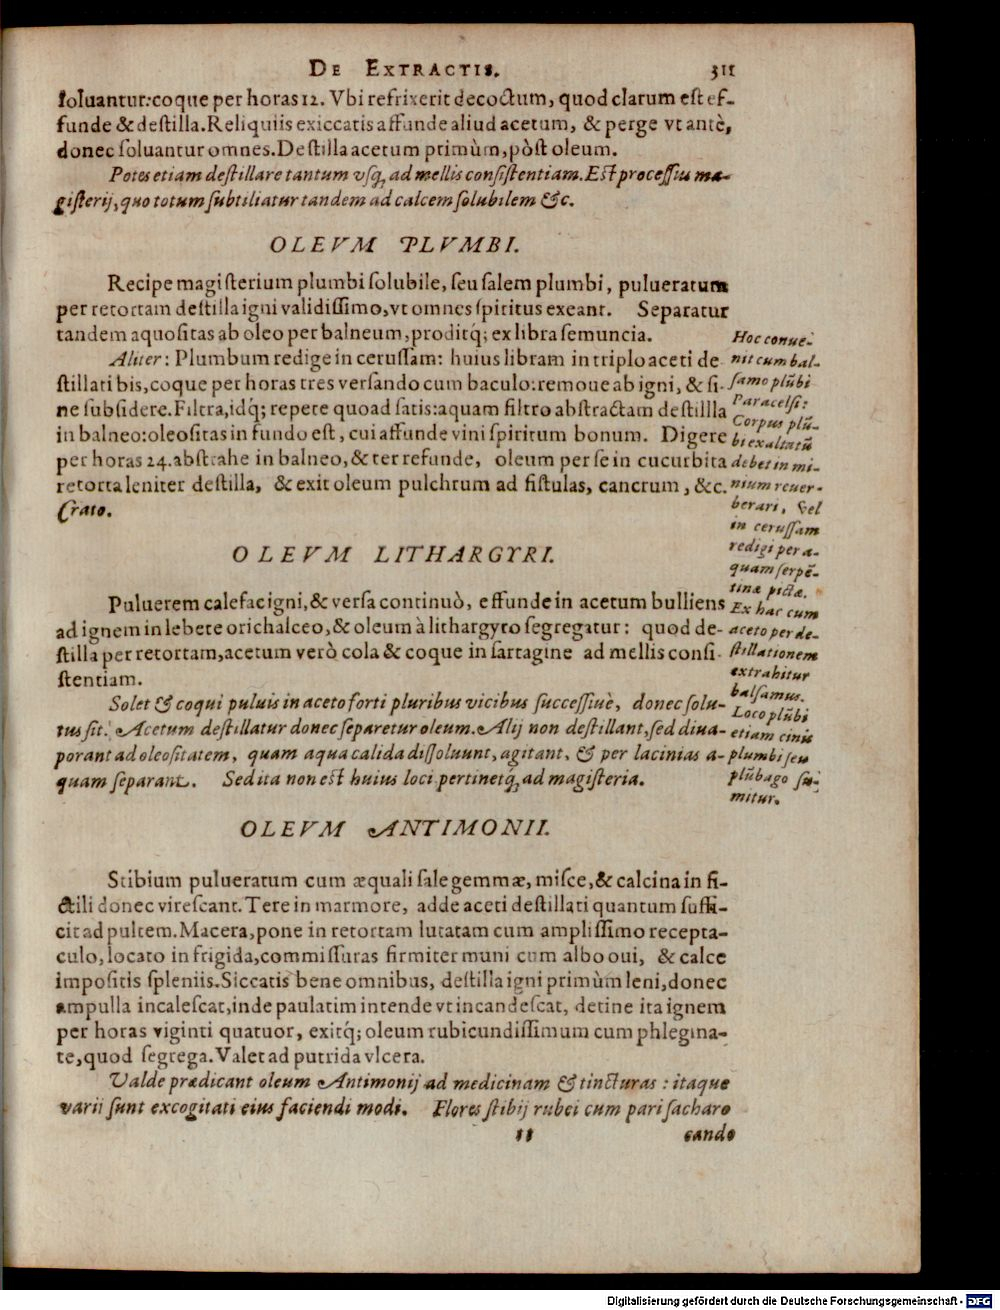 DE EXTRACTIS. 311
ſoluantur: coque per horas 12. Vbi refrixerit decoctum, quod clarum est ef-
funde & destilla. Reliquiis exiccatis affunde aliud acetum, & perge vt antè,
donec ſoluantur omnes. Destilla acetum primùm, pòst oleum.
Potes etiam deſtillare tantum vſq; ad mellis conſiſtentiam. Eſt proceſſus ma-
giſterij, quo totum ſubtiliatur tandem ad calcem ſolubilem &c.
OLEVM PLVMBI.
Recipe magiſterium plumbi ſolubile, ſeu ſalem plumbi, pulueratum
per retortam deſtilla igni validiſſimo, vt omnes ſpiritus exeant. Separatur
tandem aquoſitas ab oleo per balneum, proditq́; ex libra ſemuncia.
Aliter: Plumbum redige in ceruſſam: huius libram in triplo aceti de-
ſtillati bis, coque per horas tres verſando cum baculo: remoue ab igni, & ſi-
ne ſubſidere. Filtra, idq́; repete quoad ſatis: aquam filtro abſtractam deſtillla
in balneo: oleoſitas in fundo eſt, cui affunde vini ſpiritum bonum. Digere
per horas 24. abſtrahe in balneo, & ter refunde, oleum per ſe in cucurbita
retorta leniter deſtilla, & exit oleum pulchrum ad fiſtulas, cancrum, &c.
Crato.
Hoc conue-
nit cum bal-
ſamo plūbi
Paracelſi:
Corpus plū-
bi exaltatū
debet in mi-
nium reuer-
berari, vel
in ceruſſam
redigi per a-
quam ſerpē-
tinæ pictæ.
Ex hac cum
aceto per de-
ſtillationem
extrahitur
balſamus.
Loco plūbi
etiam cinis
plumbi ſeu
plūbago ſu-
mitur.
OLEVM LITHARGYRI.
Puluerem calefac igni, & verſa continuò, effunde in acetum bulliens
ad ignem in lebete orichalceo, & oleum à lithargyro ſegregatur: quod de-
ſtilla per retortam, acetum verò cola & coque in ſartagine ad mellis conſi-
ſtentiam.
Solet & coqui puluis in aceto forti pluribus vicibus ſucceſſiuè, donec ſolu-
tus ſit. Acetum deſtillatur donec ſeparetur oleum. Alij non deſtillant, ſed diua-
porant ad oleoſitatem, quam aqua calida diſſoluunt, agitant, & per lacinias a-
quam ſeparant. Sed ita non eſt huius loci pertinetq́; ad magiſteria.
OLEVM ANTIMONII.
Stibium pulueratum cum æquali ſale gemmæ, miſce, & calcina in fi-
ctili donec vireſcant. Tere in marmore, adde aceti deſtillati quantum ſuffi-
cit ad pultem. Macera, pone in retortam lutatam cum ampliſſimo recepta-
culo, locato in frigida, commiſſuras firmiter muni cum albo oui, & calce
impoſitis ſpleniis. Siccatis bene omnibus, deſtilla igni primùm leni, donec
ampulla incaleſcat, inde paulatim intende vt incandeſcat, detine ita ignem
per horas viginti quatuor, exitq́; oleum rubicundiſſimum cum phlegma-
te, quod ſegrega. Valet ad putrida vlcera.
Valde prædicant oleum Antimonij ad medicinam & tincturas: itaque
varii ſunt excogitati eius faciendi modi. Flores ſtibij rubei cum pari ſacharo
cando